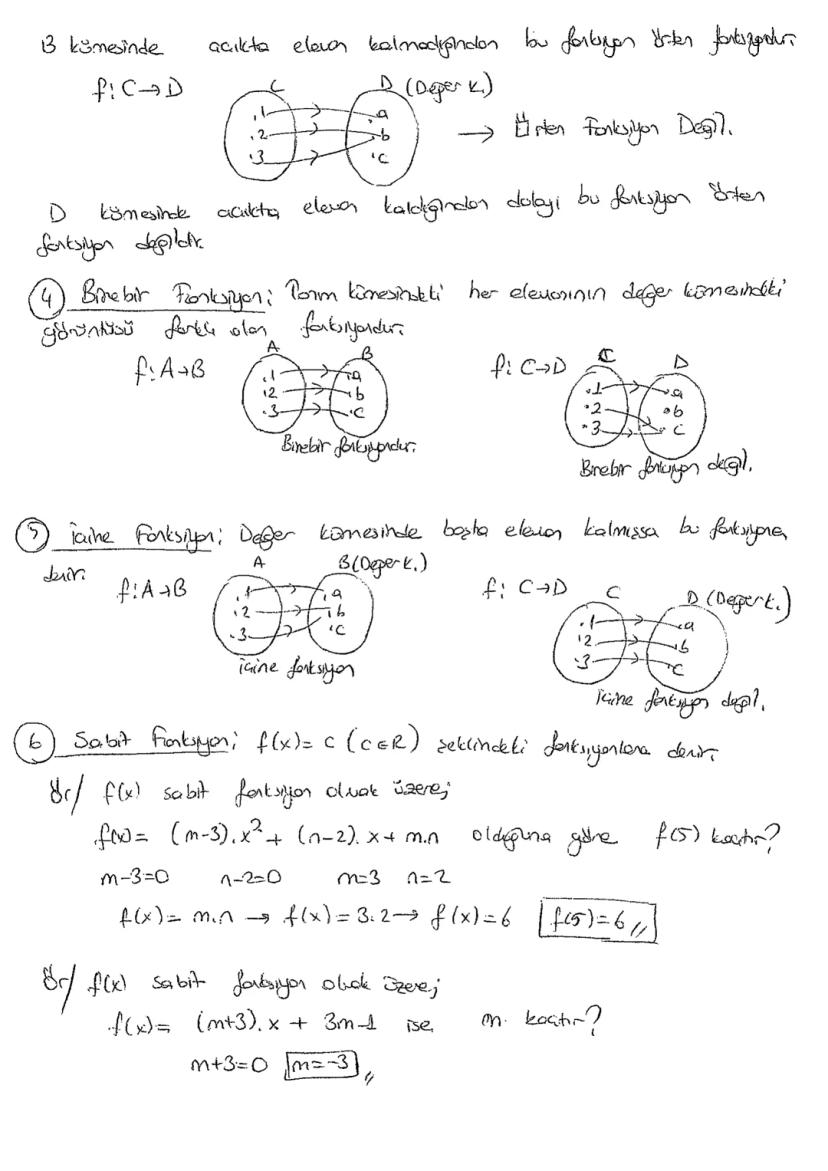 B kümesinde açıkta eleman kalmadığından bu fonksiyon örten fonksiyondur.
f: C→D C D (Değer k.)
.1 .a
.2 .b → Örten Fonksiyon Değil.
.3 .c
D kümesinde açıkta eleman kaldığından dolayı bu fonksiyon örten
fonksiyon değildir.
4 Birebir Fonksiyon; Tanım kümesindeki her elemanının değer kümesindeki
görüntüsü farklı olan fonksiyondur.
f: A→B A B f: C→D C D
.1 .a .1 .a
.2 .b .2 .b
.3 .c .3 .c
Birebir fonksiyondur. Birebir fonksiyon değil.
5 İçine Fonksiyon; Değer kümesinde boşta eleman kalmışsa bu fonksiyona
denir.
f: A→B A B (Değer k.) f: C→D C D (Değer k.)
.1 .a .1 .a
.2 .b .2 .b
.3 .c .3 .c
içine fonksiyon İçine fonksiyon değil.
6 Sabit Fonksiyon; f(x)= c (c∈R) şeklindeki fonksiyonlara denir.
Ör/ f(x) sabit fonksiyon olmak üzere;
f(x)= (m-3).x² + (n-2).x + m.n olduğuna göre f(5) kaçtır?
m-3=0 n-2=0 m=3 n=2
f(x)= m.n → f(x)=3.2 → f(x)=6 f(5)=6 //
Ör/ f(x) sabit fonksiyon olmak üzere;
f(x)= (m+3).x + 3m-1 ise, m kaçtır?
m+3=0 m=-3 //